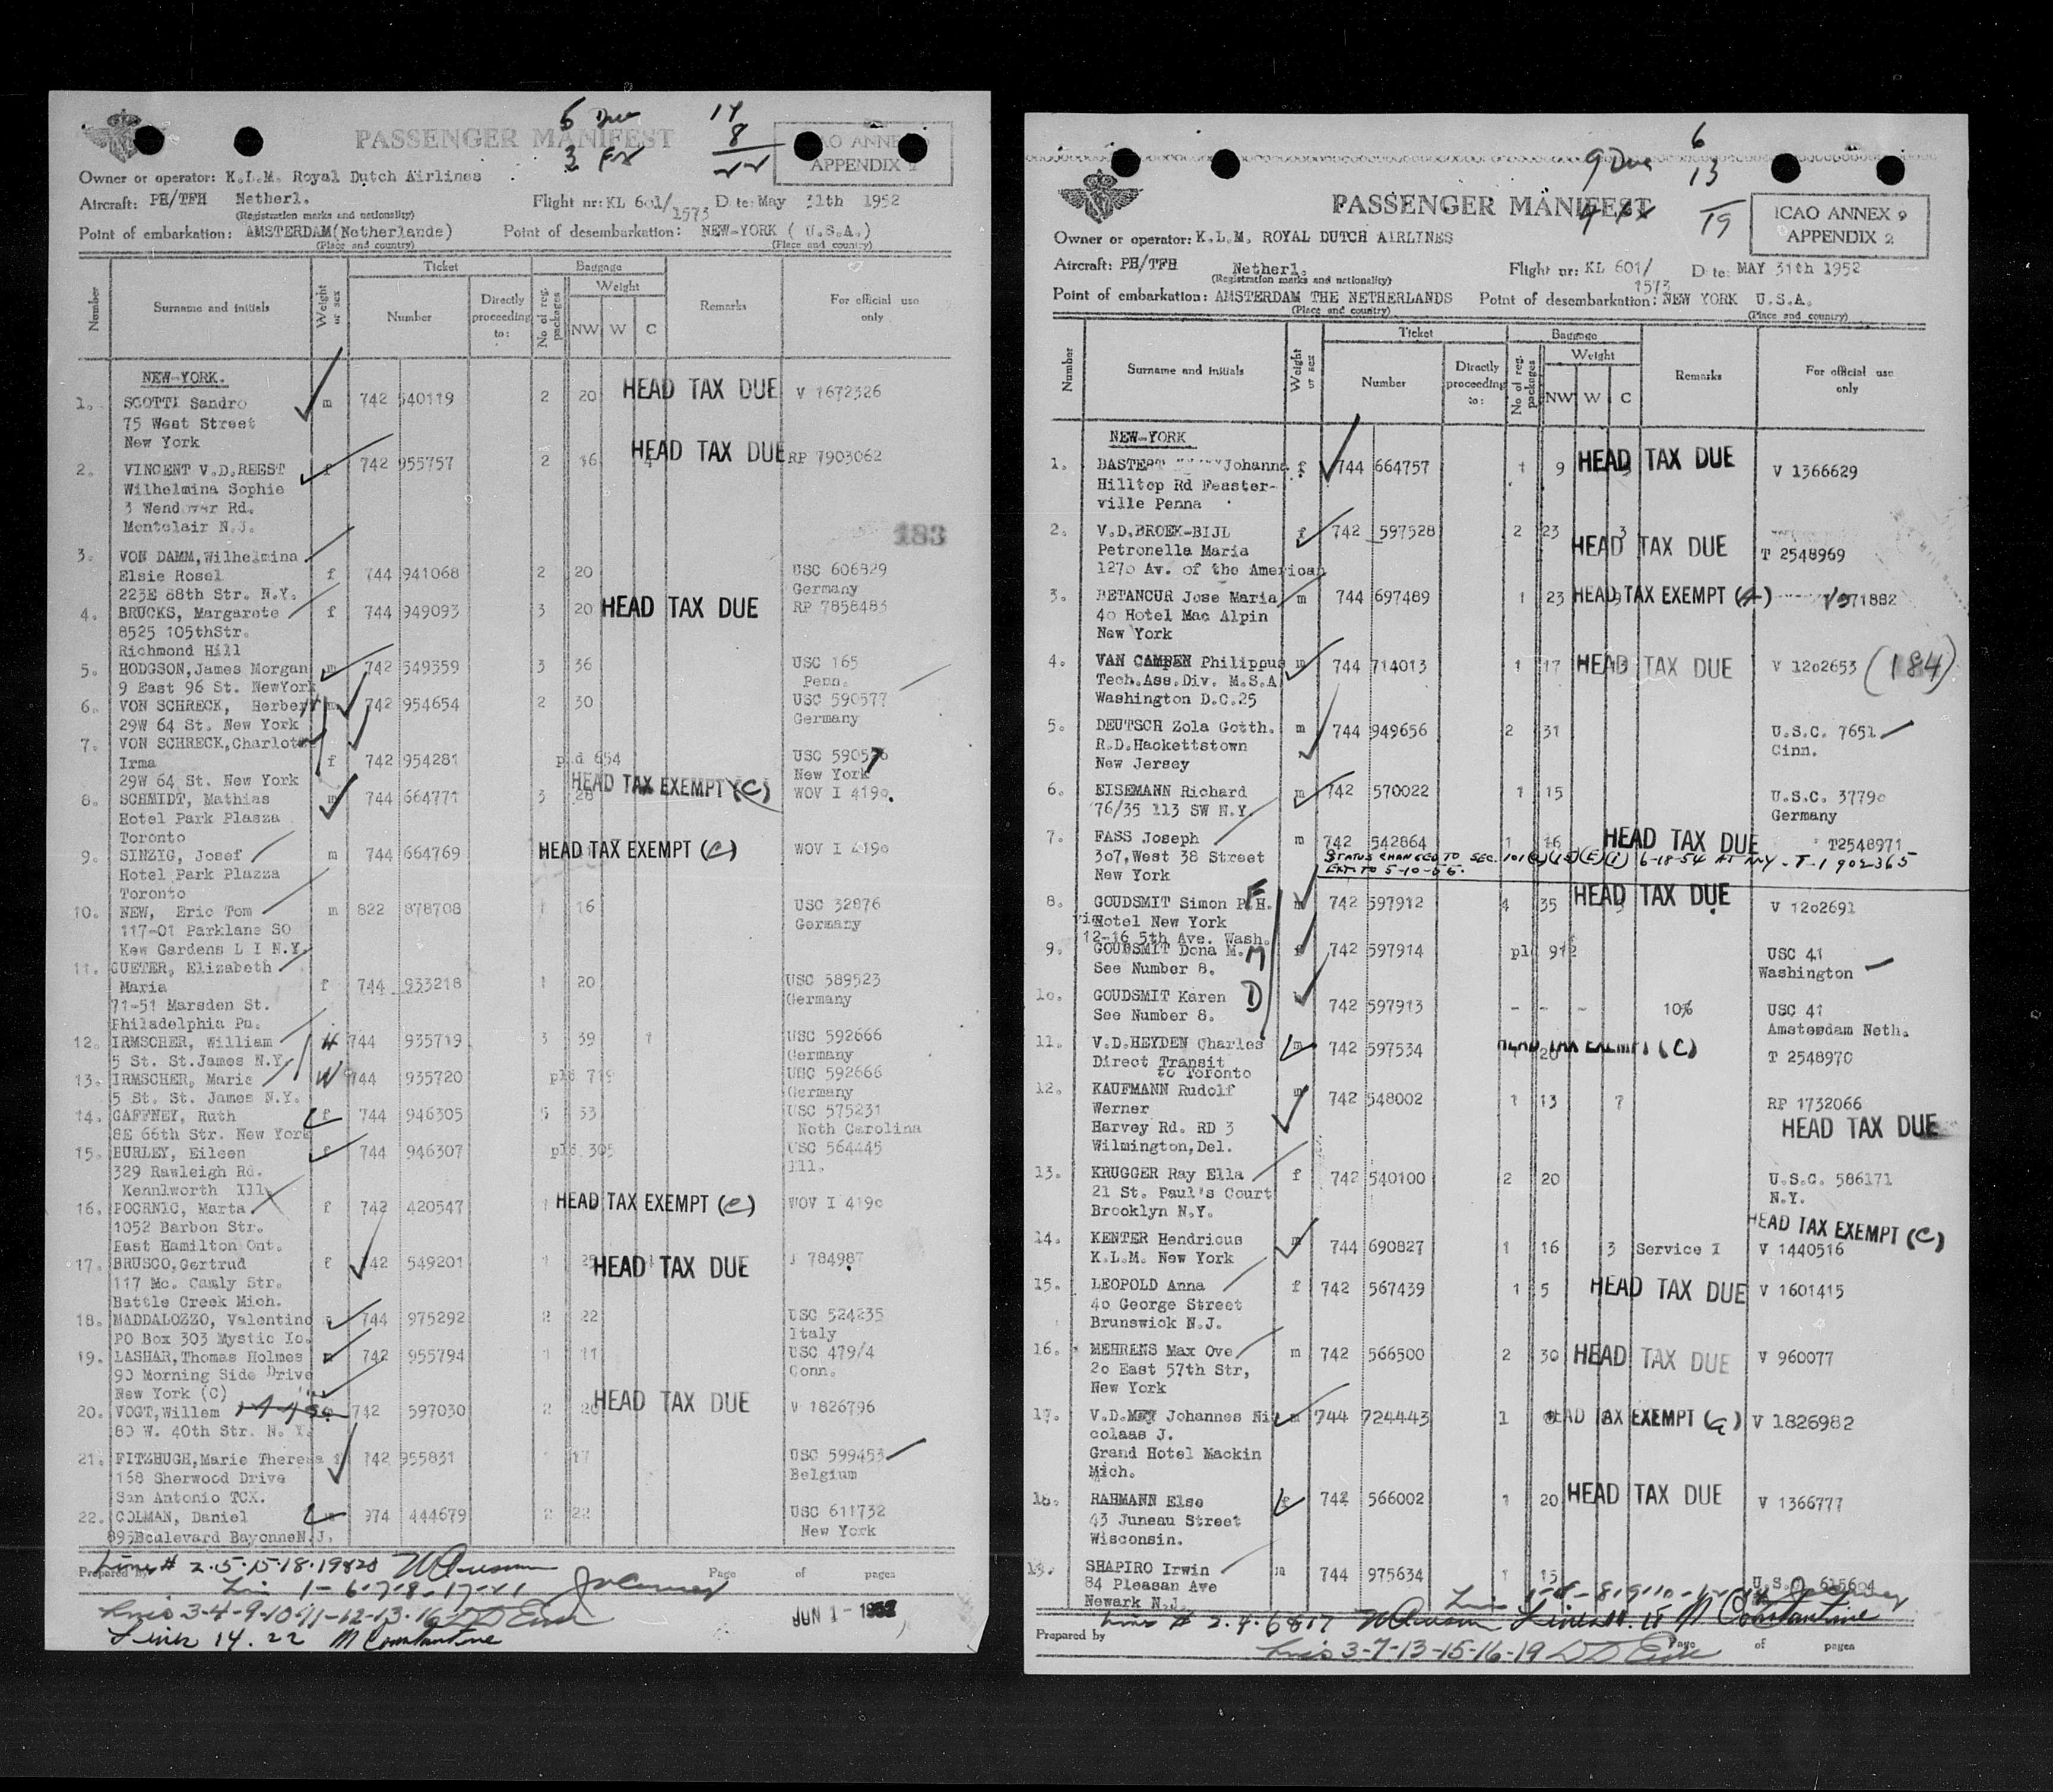 PASSENGER MANIFEST
5 Due
3 Ex
14
8
22
ICAO ANNEX 9
APPENDIX 2
Owner or operator: K.L.M. Royal Dutch Airlines
Aircraft: PH/TFH Netherl. Flight nr: KL 601/1573 Date: May 31th 1952
(Registration marks and nationality)
Point of embarkation: AMSTERDAM(Netherlands) Point of desembarkation: NEW-YORK ( U.S.A.)
(Place and country) (Place and country)
Ticket Baggage
Number Surname and initials Weight or sex Number Directly proceeding to: No of reg. packages Weight NW W C Remarks For official use only
NEW-YORK.
1. SCOTTI Sandro m 742 540119 2 20 HEAD TAX DUE V 1672326
75 West Street
New York
2. VINCENT V.D.REEST f 742 955757 2 16 4 HEAD TAX DUE RP 7903062
Wilhelmina Sophie
3 Wendover Rd.
Montclair N.J.
183
3. VON DAMM,Wilhelmina
Elsie Rosel f 744 941068 2 20 USC 606829
223E 88th Str. N.Y. Germany
4. BRUCKS, Margarete f 744 949093 3 20 HEAD TAX DUE RP 7858483
8525 105thStr.
Richmond Hill
5. HODGSON,James Morgan m 742 549359 3 36 USC 165
9 East 96 St. NewYork Penn.
6. VON SCHRECK, Herbert m 742 954654 2 30 USC 590577
29W 64 St. New York Germany
7. VON SCHRECK,Charlotte
Irma f 742 954281 pld 654 USC 590576 7
29W 64 St. New York New York
8. SCHMIDT, Mathias m 744 664771 3 28 HEAD TAX EXEMPT (C) WOV I 4190
Hotel Park Plasza
Toronto
9. SINZIG, Josef m 744 664769 HEAD TAX EXEMPT (C) WOV I 4190
Hotel Park Plazza
Toronto
10. NEW, Eric Tom m 822 878708 1 16 USC 32876
117-01 Parklane SO Germany
Kew Gardens L I N.Y.
11. GUETER, Elizabeth
Maria f 744 933218 1 20 USC 589523
71-51 Marsden St. Germany
Philadelphia Pa.
12. IRMSCHER, William H 744 935719 3 39 1 USC 592666
5 St. St.James N.Y. Germany
13. IRMSCHER, Marie W 744 935720 pld 719 USC 592666
5 St. St. James N.Y. Germany
14. GAFFNEY, Ruth f 744 946305 5 53 USC 575231
8E 66th Str. New York Noth Carolina
15. BURLEY, Eileen f 744 946307 pld 305 USC 564445
329 Rawleigh Rd. Ill.
Kennlworth Ill
16. POCRNIC, Marta f 742 420547 1 HEAD TAX EXEMPT (C) WOV I 4190
1052 Barbon Str.
East Hamilton Ont.
17. BRUSCO,Gertrud f 742 549201 1 25 1 HEAD TAX DUE I 784987
117 Mc. Camly Str.
Battle Creek Mich.
18. MADDALOZZO, Valentino 744 975292 2 22 USC 524235
PO Box 303 Mystic Io. Italy
19. LASHAR,Thomas Holmes m 742 955794 1 11 USC 479/4
90 Morning Side Drive Conn.
New York (C)
20. VOGT,Willem 742 597030 2 20 HEAD TAX DUE V 1826796
80 W. 40th Str. N. Y.
21. FITZHUGH,Marie Theresa f 742 955831 1 17 USC 599453
168 Sherwood Drive Belgium
San Antonio TCX.
22. COLMAN, Daniel m 974 444679 2 22 USC 611732
895Boulevard BayonneN.J. New York
Prepared by Page of pages
Line # 2.5.15.18.19&20
Lin 1-6-7-8-17-21
Lines 3-4-9-10-11-12-13-16 DD
JUN 1 - 1952
Lines 14. 22 M Constantine
9 Due
4 Ex
6
13
19
PASSENGER MANIFEST
ICAO ANNEX 9
APPENDIX 2
Owner or operator: K.L.M. ROYAL DUTCH AIRLINES
Aircraft: PH/TFH Netherl. Flight nr: KL 601/1573 Date: MAY 31th 1952
(Registration marks and nationality)
Point of embarkation: AMSTERDAM THE NETHERLANDS Point of desembarkation: NEW YORK U.S.A.
(Place and country) (Place and country)
Ticket Baggage
Number Surname and initials Weight or sex Number Directly proceeding to: No of reg. packages Weight NW W C Remarks For official use only
NEW-YORK
1. BASTERT Johanna f 744 664757 1 9 HEAD TAX DUE V 1366629
Hilltop Rd Feaster-
ville Penna
2. V.D.BROEK-BIJL f 742 597528 2 23 3 HEAD TAX DUE T 2548969
Petronella Maria
1270 Av. of the American
3. BETANCUR Jose Maria m 744 697489 1 23 HEAD TAX EXEMPT (A) V971882
40 Hotel Mac Alpin
New York
4. VAN CAMPEN Philippus m 744 714013 1 17 HEAD TAX DUE V 1202653 (184)
Tech.Ass.Div. M.S.A
Washington D.C.25
5. DEUTSCH Zola Gotth. m 744 949656 2 31 U.S.C. 7651
R.D.Hackettstown Cinn.
New Jersey
6. EISEMANN Richard 742 570022 1 15 U.S.C. 37790
76/35 113 SW N.Y. Germany
7. FASS Joseph m 742 542864 1 16 HEAD TAX DUE T2548971
307,West 38 Street STATUS CHANGED TO SEC. 101(a)(15)(E)(i) 6-18-54 AT NNY - T-1902365
New York EXT TO 5-10-56.
8. GOUDSMIT Simon P.H. F m 742 597912 4 35 HEAD TAX DUE V 1202691
Hotel New York
12-16 5th Ave. Wash.
9. GOUDSMIT Dona M. M f 742 597914 pld 912 USC 41
See Number 8. Washington
10. GOUDSMIT Karen D 742 597913 - - - 10% USC 41
See Number 8. Amsterdam Neth.
11. V.D.HEYDEN Charles m 742 597534 1 20 HEAD TAX EXEMPT (C) T 2548970
Direct Transit
to Toronto
12. KAUFMANN Rudolf m 742 548002 1 13 7 RP 1732066
Werner HEAD TAX DUE
Harvey Rd. RD 3
Wilmington,Del.
13. KRUGGER Ray Ella f 742 540100 2 20 U.S.C. 586171
21 St. Paul's Court N.Y.
Brooklyn N.Y.
14. KENTER Hendricus m 744 690827 1 16 3 Service I HEAD TAX EXEMPT (C) V 1440516
K.L.M. New York
15. LEOPOLD Anna f 742 567439 1 5 HEAD TAX DUE V 1601415
40 George Street
Brunswick N.J.
16. MEHRENS Max Ove m 742 566500 2 30 HEAD TAX DUE V 960077
20 East 57th Str,
New York
17. V.D.MEY Johannes Ni m 744 724443 1 HEAD TAX EXEMPT (G) V 1826982
colaas J.
Grand Hotel Mackin
Mich.
18. RAHMANN Else f 742 566002 1 20 HEAD TAX DUE V 1366777
43 Juneau Street
Wisconsin.
19. SHAPIRO Irwin m 744 975634 1 15 U.S.C. 615604
84 Pleasan Ave
Newark N.J.
Line # 2.4.6&17 M Constantine
Prepared by Page of pages
Lines 3-7-13-15-16-19 DD